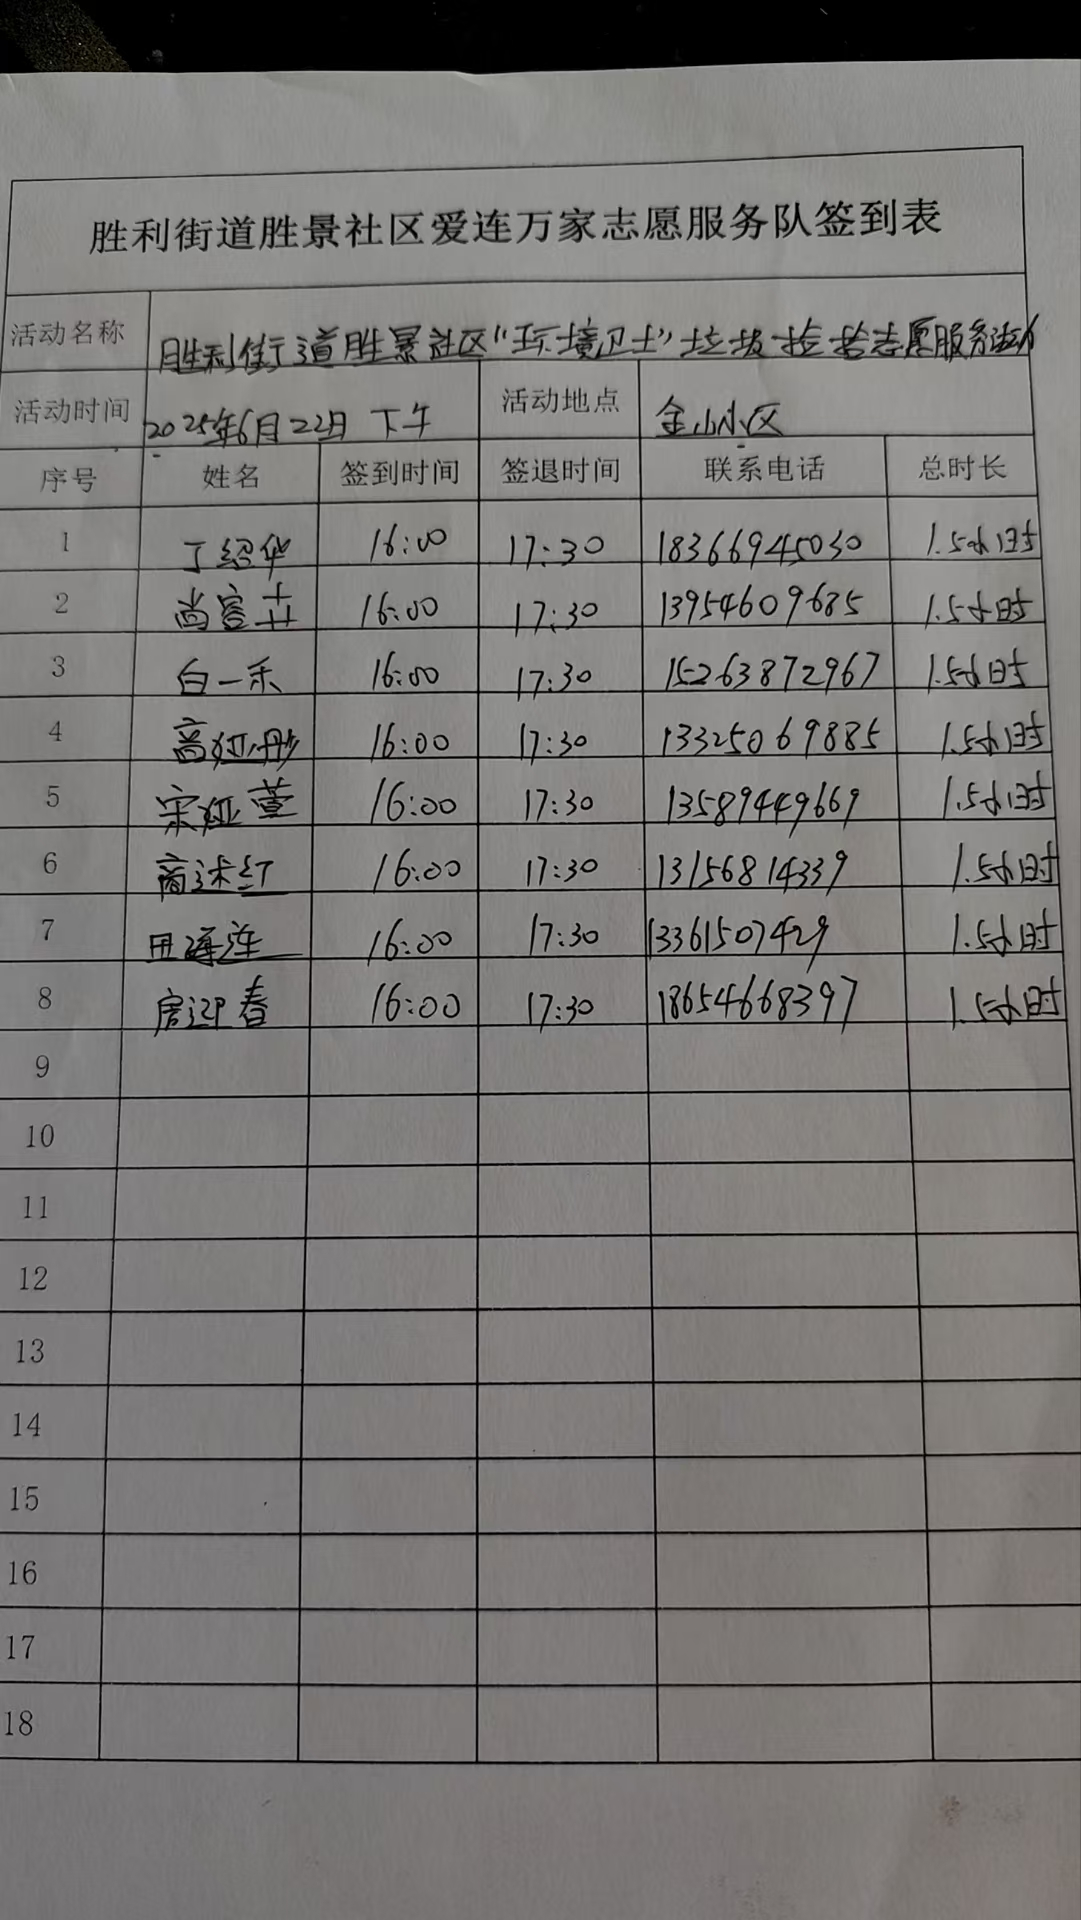 胜利街道胜景社区爱连万家志愿服务队签到表
活动名称 胜利街道胜景社区“环境卫士”垃圾捡拾志愿服务活动
活动时间 2025年6月22日 下午 活动地点 金山小区
序号 姓名 签到时间 签退时间 联系电话 总时长
1 丁绍华 16:00 17:30 18366945030 1.5小时
2 尚容卉 16:00 17:30 13954609685 1.5小时
3 白一禾 16:00 17:30 15263872967 1.5小时
4 高娅彤 16:00 17:30 13325069885 1.5小时
5 宋娅萱 16:00 17:30 13589449669 1.5小时
6 商述红 16:00 17:30 13156814339 1.5小时
7 田海连 16:00 17:30 13361507429 1.5小时
8 房迎春 16:00 17:30 18654668397 1.5小时
9
10
11
12
13
14
15
16
17
18